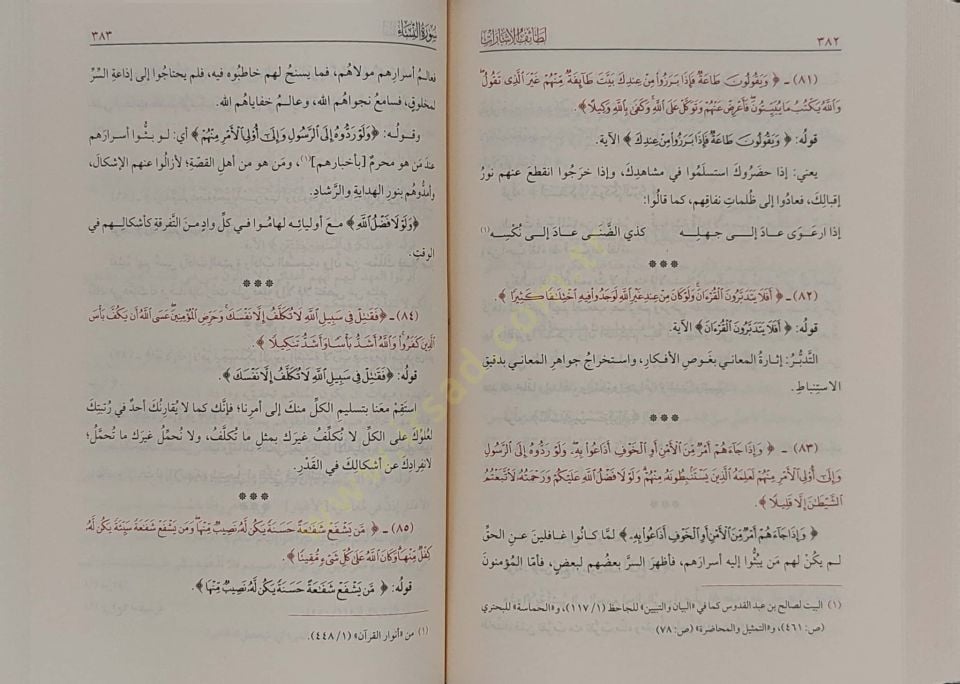 ٣٨٢
لطائف الإشارات
(٨١) ـ ﴿وَيَقُولُونَ طَاعَةٌ فَإِذَا بَرَزُوا مِنْ عِندِكَ بَيَّتَ طَائِفَةٌ مِّنْهُمْ غَيْرَ الَّذِي تَقُولُ
وَاللَّهُ يَكْتُبُ مَا يُبَيِّتُونَ فَأَعْرِضْ عَنْهُمْ وَتَوَكَّلْ عَلَى اللَّهِ وَكَفَى بِاللَّهِ وَكِيلًا﴾.
قوله: ﴿وَيَقُولُونَ طَاعَةٌ فَإِذَا بَرَزُوا مِنْ عِندِكَ﴾ الآية.
يعني: إذا حضَرُوكَ استسلَمُوا في مشاهدِكَ، وإذا خرَجُوا انقطعَ عنهم نورُ
إقبالِكَ، فعادُوا إلى ظُلماتِ نفاقِهم، كما قالُوا:
إذا ارعَوَى عـادَ إلــى جـهـلِـهِ كذي الضَّنَى عـادَ إلى نُكْسِهِ(١)
***
(٨٢) ـ ﴿أَفَلَا يَتَدَبَّرُونَ الْقُرْآنَ وَلَوْ كَانَ مِنْ عِندِ غَيْرِ اللَّهِ لَوَجَدُوا فِيهِ اخْتِلَافًا كَثِيرًا﴾.
قوله: ﴿أَفَلَا يَتَدَبَّرُونَ الْقُرْآنَ﴾ الآية.
التَّدبُّرُ: إثارةُ المعاني بغَوصِ الأفكارِ، واستخراجُ جواهرِ المعاني بدقيقِ
الاستِنباطِ.
***
(٨٣) ـ ﴿وَإِذَا جَاءَهُمْ أَمْرٌ مِّنَ الْأَمْنِ أَوِ الْخَوْفِ أَذَاعُوا بِهِ وَلَوْ رَدُّوهُ إِلَى الرَّسُولِ
وَإِلَى أُولِي الْأَمْرِ مِنْهُمْ لَعَلِمَهُ الَّذِينَ يَسْتَنبِطُونَهُ مِنْهُمْ وَلَوْلَا فَضْلُ اللَّهِ عَلَيْكُمْ وَرَحْمَتُهُ لَاتَّبَعْتُمُ
الشَّيْطَانَ إِلَّا قَلِيلًا﴾.
﴿وَإِذَا جَاءَهُمْ أَمْرٌ مِّنَ الْأَمْنِ أَوِ الْخَوْفِ أَذَاعُوا بِهِ﴾ لمَّا كـانُوا غـافـلينَ عـن الحقِّ
لـم يكُنْ لهم مَن يبُثُّوا إليه أسرارَهم، فأظهَرَ السرَّ بعضُهم لبعضٍ، فأمَّا المُؤمنونَ
(١) البيت لصالح بن عبد القدوس كما في «البيان والتبيين» للجاحظ (١/ ١١٧)، و«الحماسة» للبحتري
(ص: ٤٦١)، و«التمثيل والمحاضرة» (ص: ٧٨)
سورة النساء
٣٨٣
فعالمُ أسرارِهم مولاهُم، فما يسنحُ لهم خاطبُوه فيه، فلم يحتاجُوا إلى إذاعةِ السِّرِّ
لمخلوقٍ، فسامعُ نجواهُم الله، وعـالـمُ خفاياهُم الله.
وقـولُـه: ﴿وَلَوْ رَدُّوهُ إِلَى الرَّسُولِ وَإِلَى أُولِي الْأَمْرِ مِنْهُمْ﴾ أي: لـو بثُّـوا أسـرارَهـم
عندَ مَن هو محرمٌ [بأخبارِهم](١)، ومَن هو من أهلِ القصّةِ؛ لأزالُوا عنهم الإشكالَ،
وأمدُّوهُم بنورِ الهدايةِ والرَّشادِ.
﴿وَلَوْلَا فَضْلُ اللَّهِ﴾ مـع أوليـائِـه لهامُـوا في كـلِّ وادٍ مـن التَّفرقةِ كـأشكالِـهـم في
الوقتِ.
***
(٨٤) ـ ﴿فَقَاتِلْ فِي سَبِيلِ اللَّهِ لَا تُكَلَّفُ إِلَّا نَفْسَكَ وَحَرِّضِ الْمُؤْمِنِينَ عَسَى اللَّهُ أَن يَكُفَّ بَأْسَ
الَّذِينَ كَفَرُوا وَاللَّهُ أَشَدُّ بَأْسًا وَأَشَدُّ تَنكِيلًا﴾.
قولُه: ﴿فَقَاتِلْ فِي سَبِيلِ اللَّهِ لَا تُكَلَّفُ إِلَّا نَفْسَكَ﴾.
استقِمْ معَنا بتسليمِ الكلِّ منكَ إلى أمرِنا؛ فإنَّكَ كما لا يُقارِنُكَ أحدٌ في رُتبتِكَ
لعُلوِّكَ على الكلِّ لا نُكلِّفُ غيرَك بمثلِ ما تُكلَّفُ، ولا نُحمِّلُ غيرَك ما تُحمَّلُ؛
لانفِرادِكَ عن أشكالِكَ في القَدْرِ.
***
(٨٥) ـ ﴿مَّن يَشْفَعْ شَفَاعَةً حَسَنَةً يَكُن لَّهُ نَصِيبٌ مِّنْهَا وَمَن يَشْفَعْ شَفَاعَةً سَيِّئَةً يَكُن لَّهُ
كِفْلٌ مِّنْهَا وَكَانَ اللَّهُ عَلَى كُلِّ شَيْءٍ مُّقِيتًا﴾.
قولُه: ﴿مَّن يَشْفَعْ شَفَاعَةً حَسَنَةً يَكُن لَّهُ نَصِيبٌ مِّنْهَا﴾.
(١) من «أنوار القرآن» (١/ ٤٤٨).